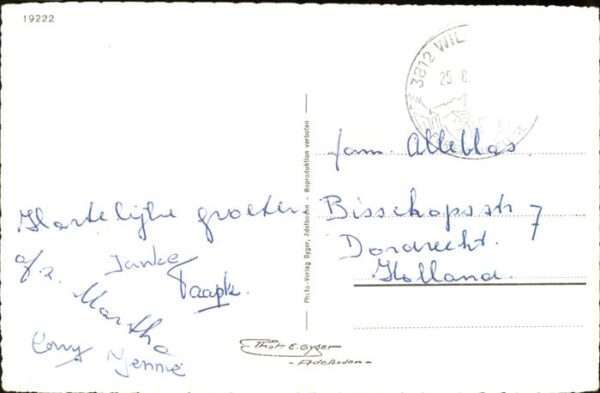 19222
3812 WIL
25. 6
Hartelijke groeten
a/z.
Janke
Paapk.
Martha
Corry
Jennie
fam. Alleblas.
Bisschopsstr 7
Dordrecht.
Holland.
Photo-Verlag Gyger, Adelboden – Reproduktion verboten
Phot. E. Gyger
- Adelboden -